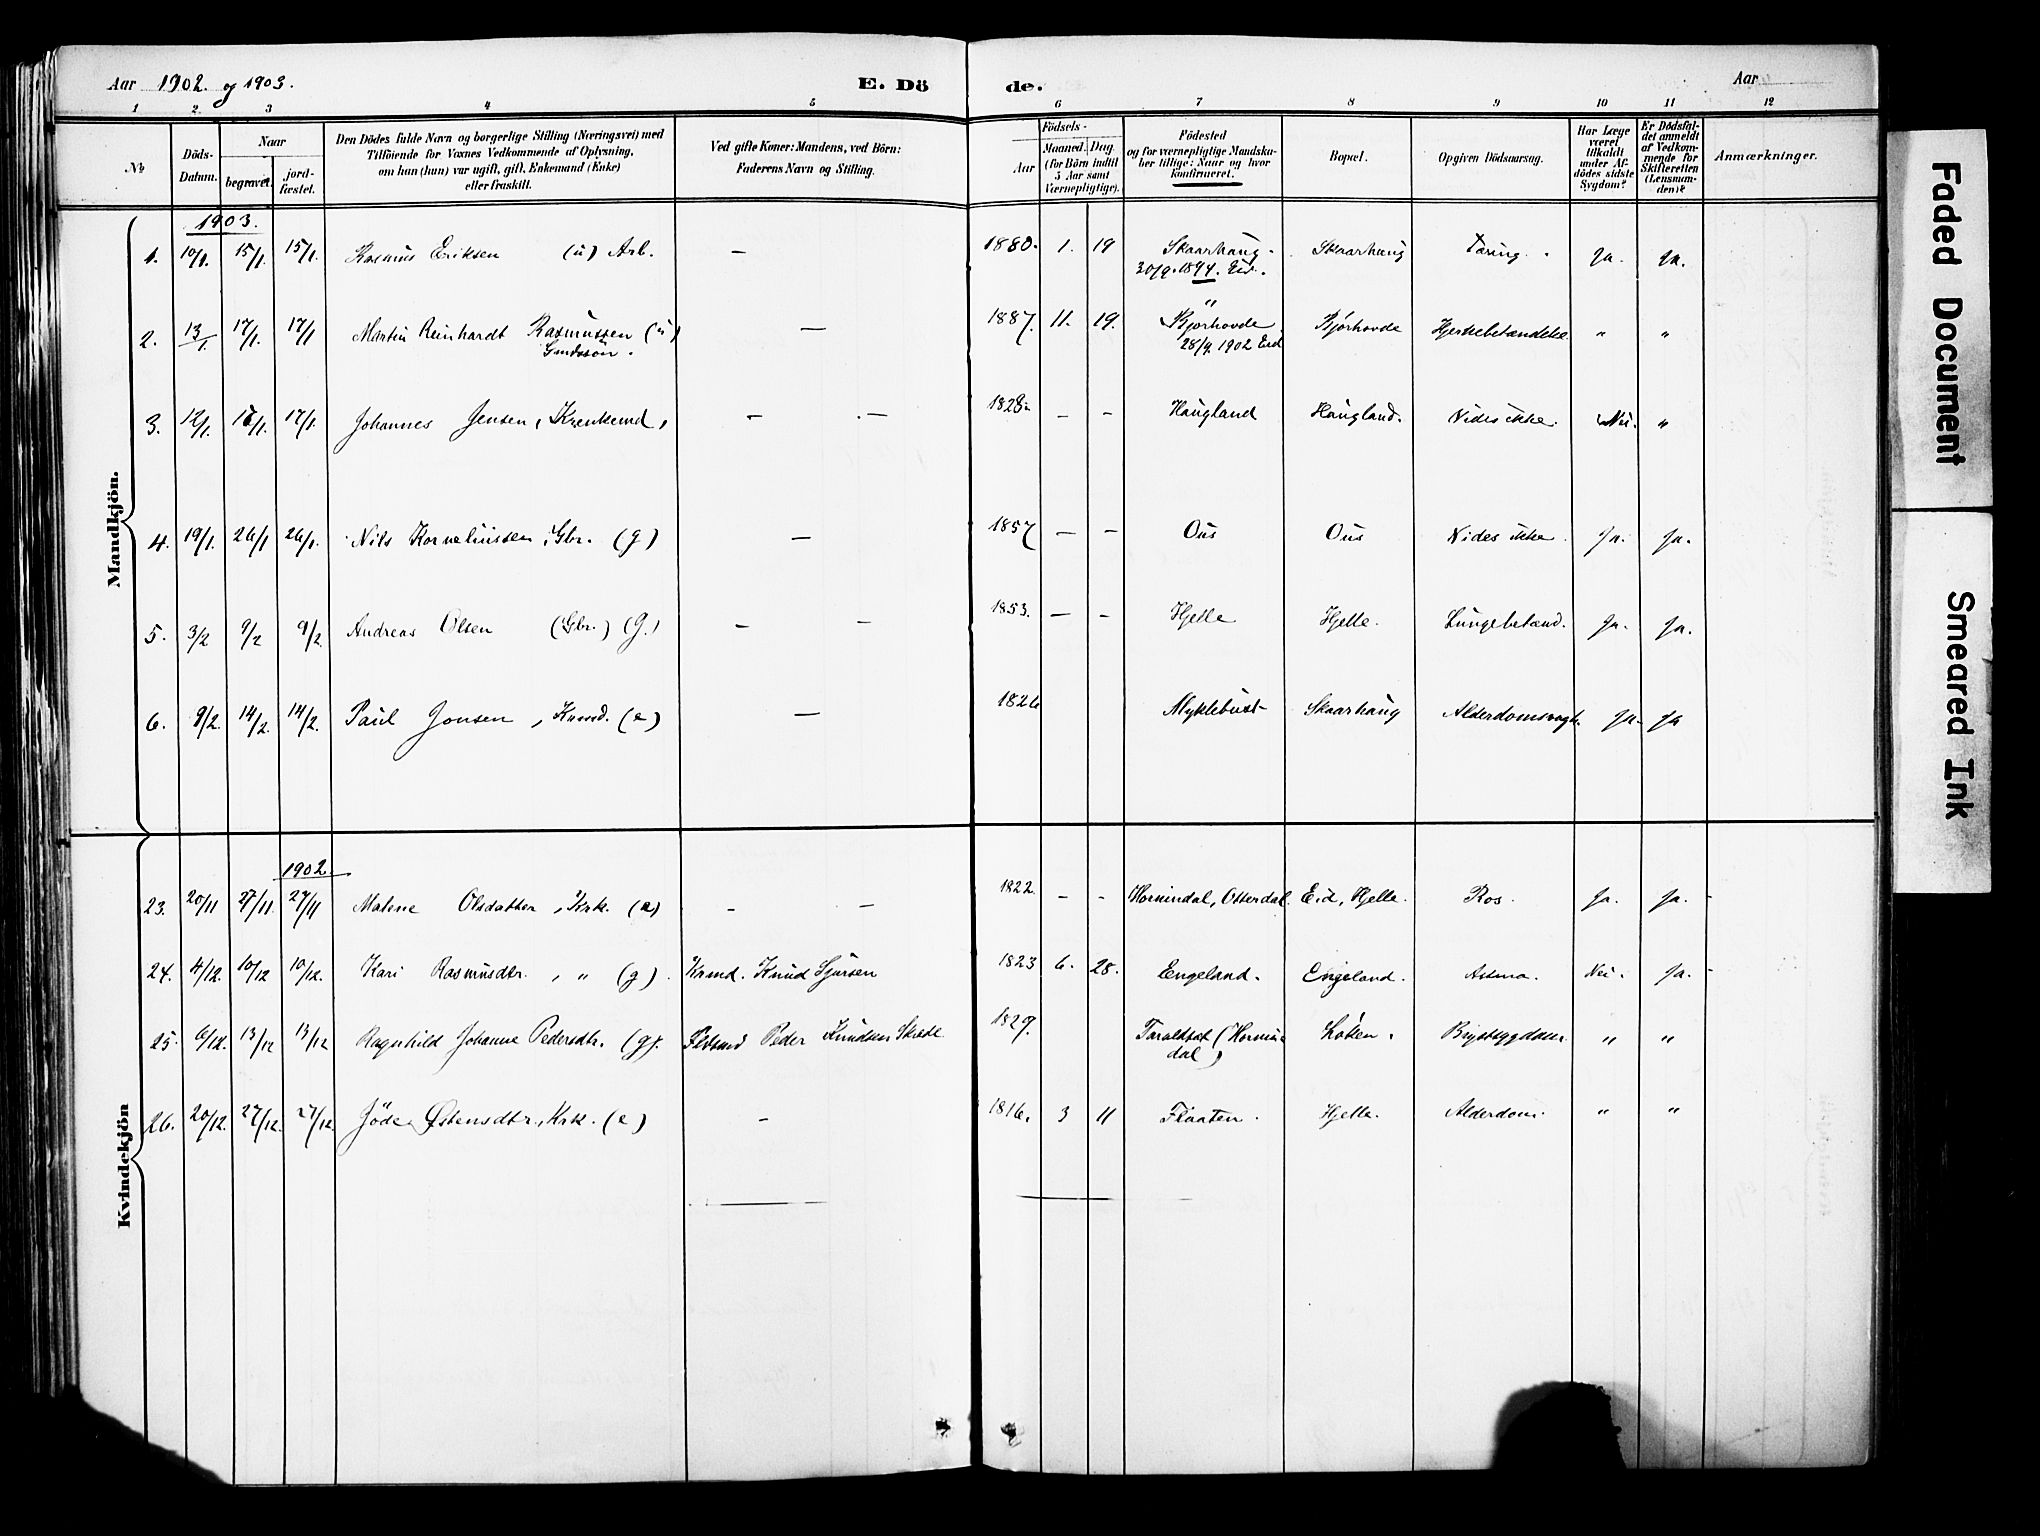 Aar 1902. og 1903.
E. Dö
de.
Aar
1 2. 3 4 5 6 7 8 9 10 11 12
No
Döds-Datum.
Naar
begravet.
jord-fæstet.
Den Dödes fulde Navn og borgerlige Stilling (Næringsvei) med
Tilföiende for Voxnes Vedkommende af Oplysning,
om han (hun) var ugift, gift, Enkemand (Enke)
eller fraskilt.
Ved gifte Koner: Mandens, ved Börn:
Faderens Navn og Stilling.
Födsels-
Aar
Maaned. Dag.
(for Börn indtil
5 Aar samt
Værnepligtige).
Födested
og for værnepligtige Mandska-
ber tillige: Naar og hvor
konfirmeret.
Bopæl.
Opgiven Dödsaarsag.
Har Læge
været
tilkaldt
under Af-
dödes sidste
Sygdom?
Er Dödsfal-
det anmeldt
af Vedkom-
mende for
Skifteretten
(Lensman-
den)?
Anmærkninger.
Mandkjön.
1903.
1. 10/1. 15/1. 15/1. Rasmus Eriksen (u) Arb. — 1880. 1. 19 Skaarhaug. Skaarhaug Tæring. Ja. Ja.
30/9. 1894. Eid.
2. 13/1. 17/1. 17/1 Martin Reinhardt Rasmussen (u) — 1887. 11. 19. Bjørhovde Bjørhovde Hjernebetændelse. " "
Gmdssøn. 28/9. 1902 Eid
3. 12/1. 17/1. 17/1. Johannes Jensen, — — 1828. — — Haugland Haugland. Vides ikke. Nei. "
4. 19/1. 26/1 26/1. Nils Korneliussen, Gbr. (g) — 1857 — — Ous Ous Vides ikke. Ja. Ja.
5. 3/2 9/2 9/2. Andreas Olsen (Gbr.) (g.) — — 1853. — — Hjelle Hjelle. Lungebetænd. Ja. Ja.
6. 9/2. 14/2. 14/2. Paul Jonsen, Kaard. (e) — 1826 Myklebust Skaarhaug Alderdomssvagh. Ja. Ja
Kvindekjön
1902.
23. 20/11 27/11. 27/11 Malene Olsdatter, Krk. (e) — — 1822. — — Hornindal, Otterdal. Eid, Hjelle. Ros. Ja. Ja. -
24. 4/12. 10/12 10/12. Kari Rasmusdtr., " (g). Kaard. Knud Sjursen 1823 6. 28. Engeland. Engeland. Astma. Nei. Ja. -
25. 6/12. 13/12 13/12 Ragnhild Johanne Pedersdtr. (g). Peder Knudsen 1829. Taraldset (Hornin- Løken. Brystsygdom. " "
dal)
26. 20/12. 27/12. 27/12. Jöde Østensdtr., Krk. (e) — 1816. 3 11 Flaaten. Hjelle. Alderdom. " "
Faded Document
Smeared Ink